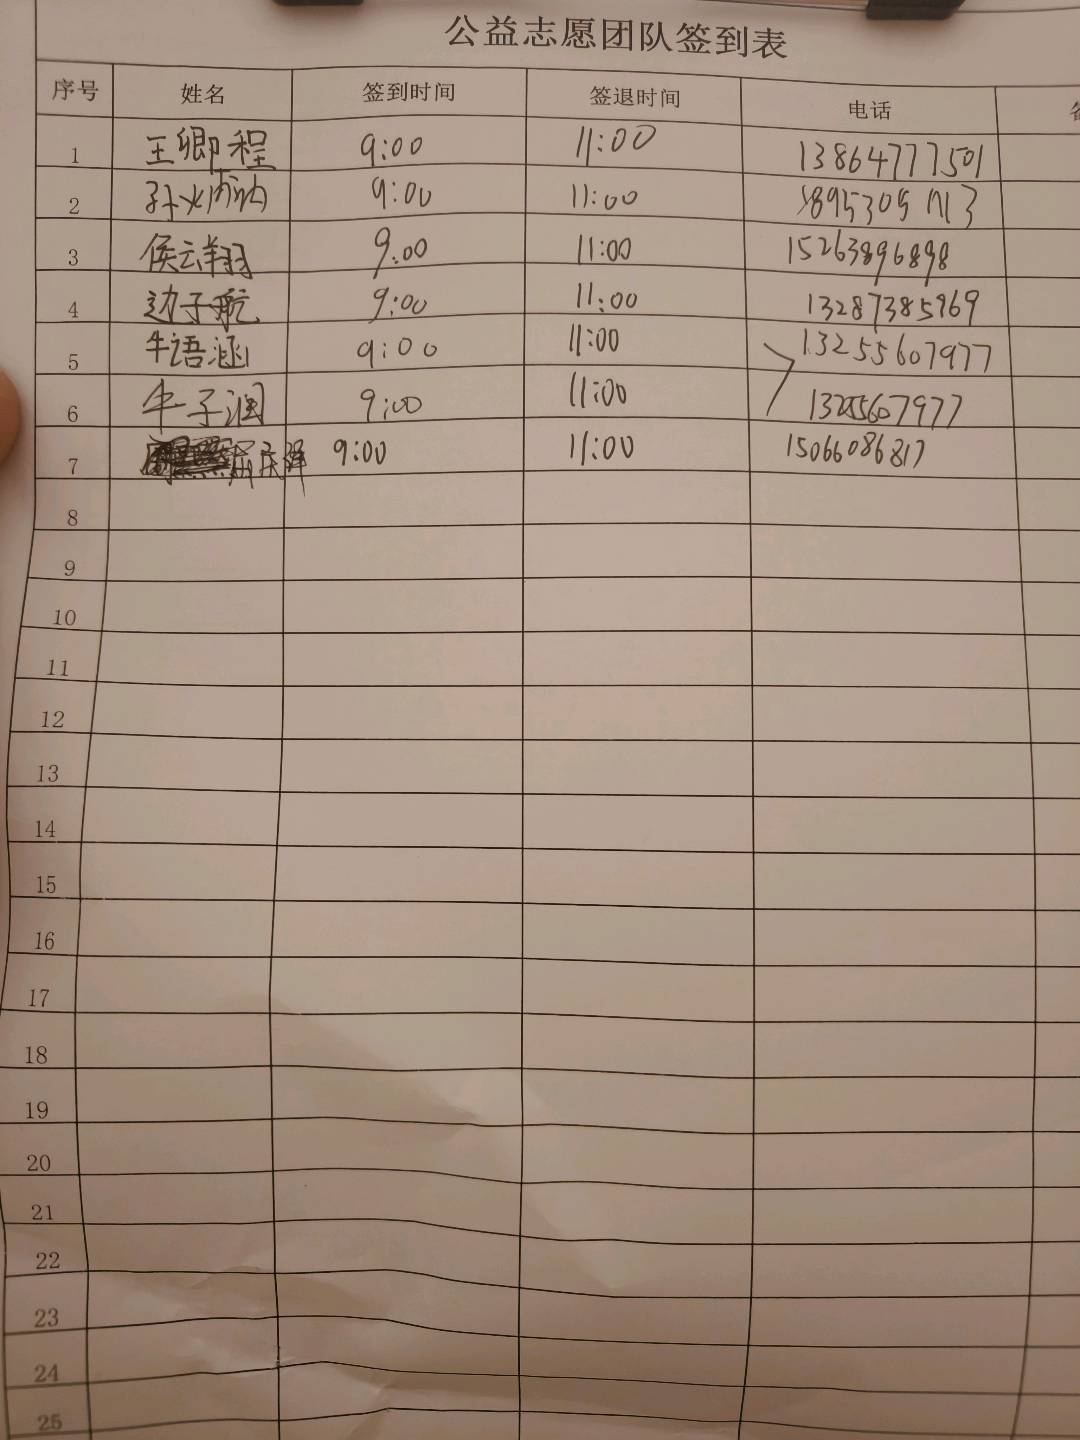 公益志愿团队签到表
序号 姓名 签到时间 签退时间 电话
1 王卿程 9:00 11:00 13864777501
2 孙 9:00 11:00
3 侯云翔 9:00 11:00 15263896898
4 边子航 9:00 11:00 13287385969
5 牛语涵 9:00 11:00 13255607977
6 牛子润 9:00 11:00 13255607977
7 9:00 11:00 15066086817
8
9
10
11
12
13
14
15
16
17
18
19
20
21
22
23
24
25